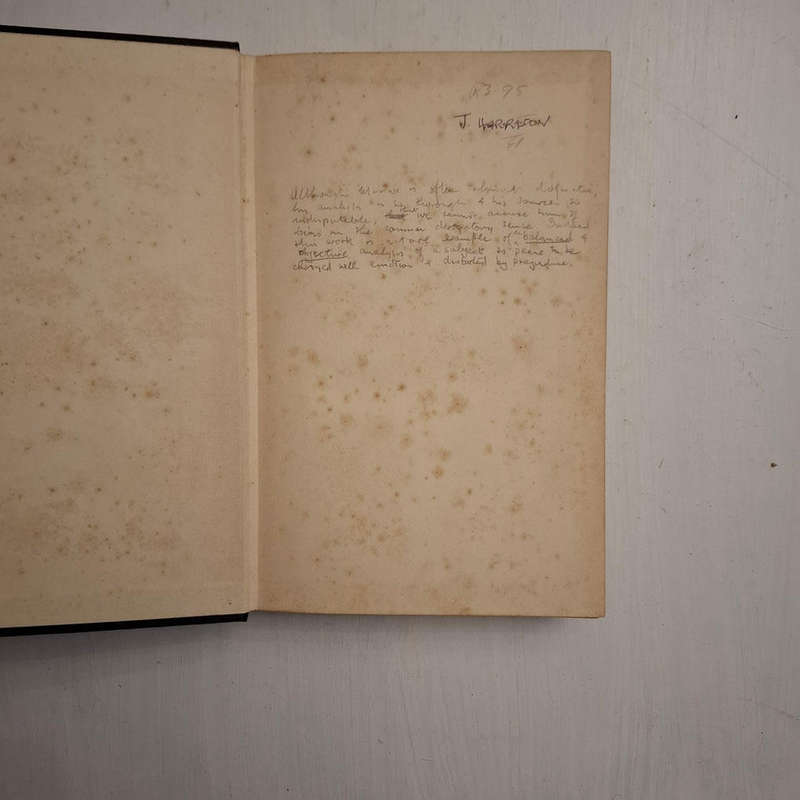 3.95
J. HARRISON
Although is often
his analysis is thorough & his sources so
indisputable, that we cannot accuse him of
bias in the common derogatory sense. Indeed
this work is a example of balanced &
objective analysis of a subject so prone to be
charged with emotion & distorted by prejudice.